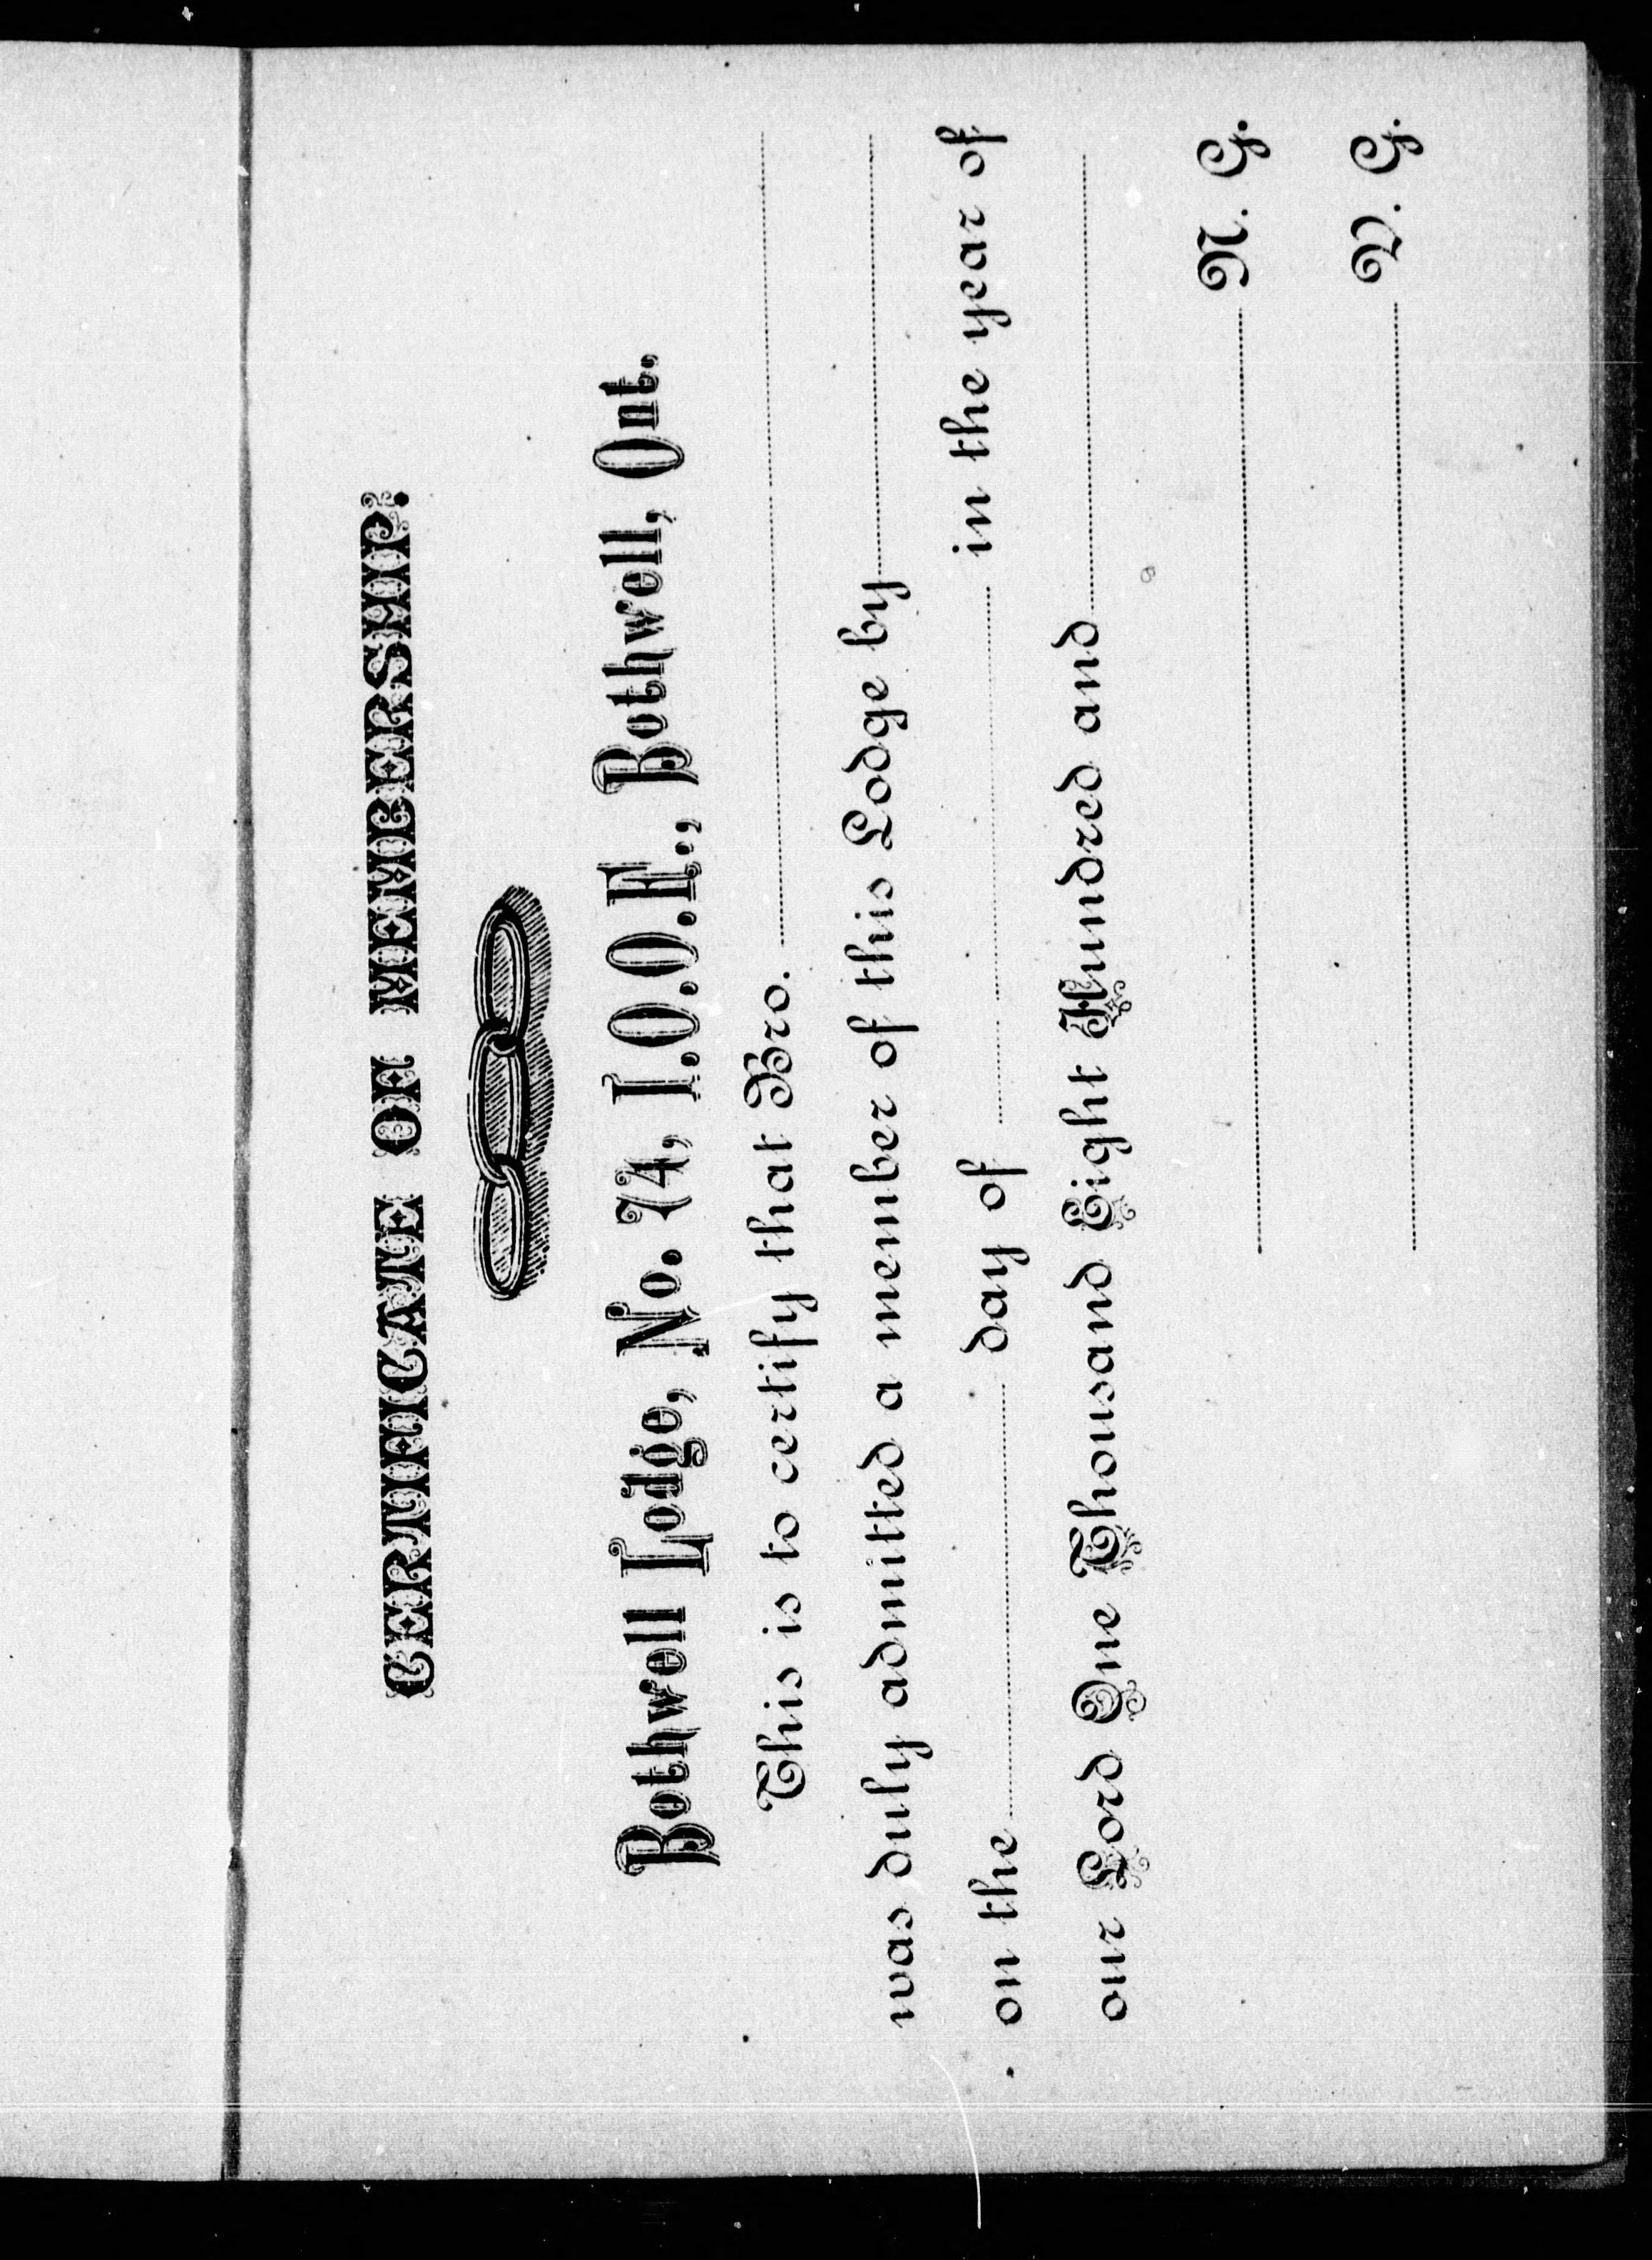 CERTIFICATE OF MEMBERSHIP.
Bothwell Lodge, No. 74, I.O.O.F., Bothwell, Ont.
This is to certify that Bro.
was duly admitted a member of this Lodge by
on the day of in the year of
our Lord One Thousand Eight Hundred and
N. G.
V. G.